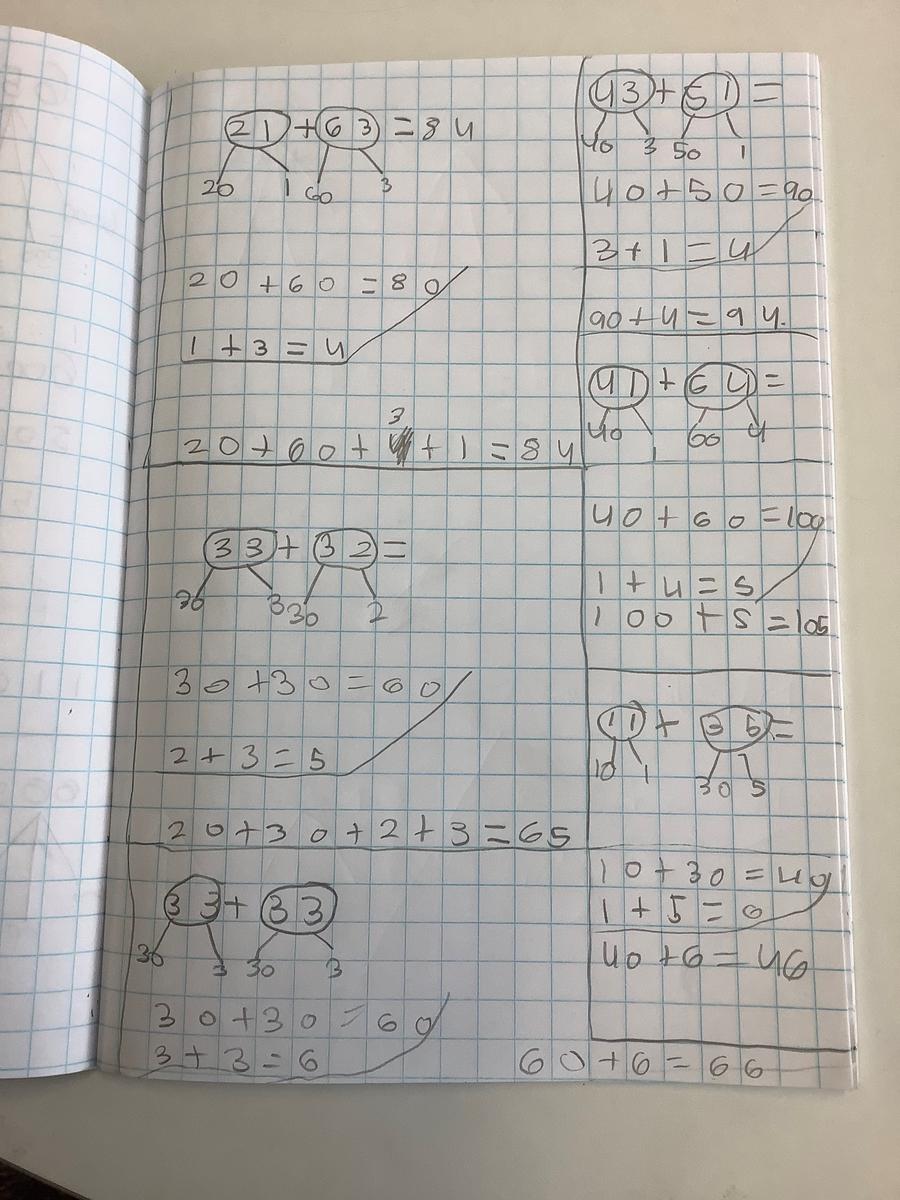 21 + 63 = 84
20 1 60 3
20 + 60 = 80
1 + 3 = 4
3
20 + 60 + + 1 = 84
33 + 32 =
30 3 30 2
30 + 30 = 60
2 + 3 = 5
20 + 30 + 2 + 3 = 65
33 + 33
30 3 30 3
30 + 30 = 60
3 + 3 = 6
60 + 6 = 66
43 + 51 =
40 3 50 1
40 + 50 = 90
3 + 1 = 4
90 + 4 = 94.
41 + 64 =
40 1 60 4
40 + 60 = 100
1 + 4 = 5
100 + 5 = 105
11 + 35 =
10 1 30 5
10 + 30 = 40
1 + 5 = 6
40 + 6 = 46